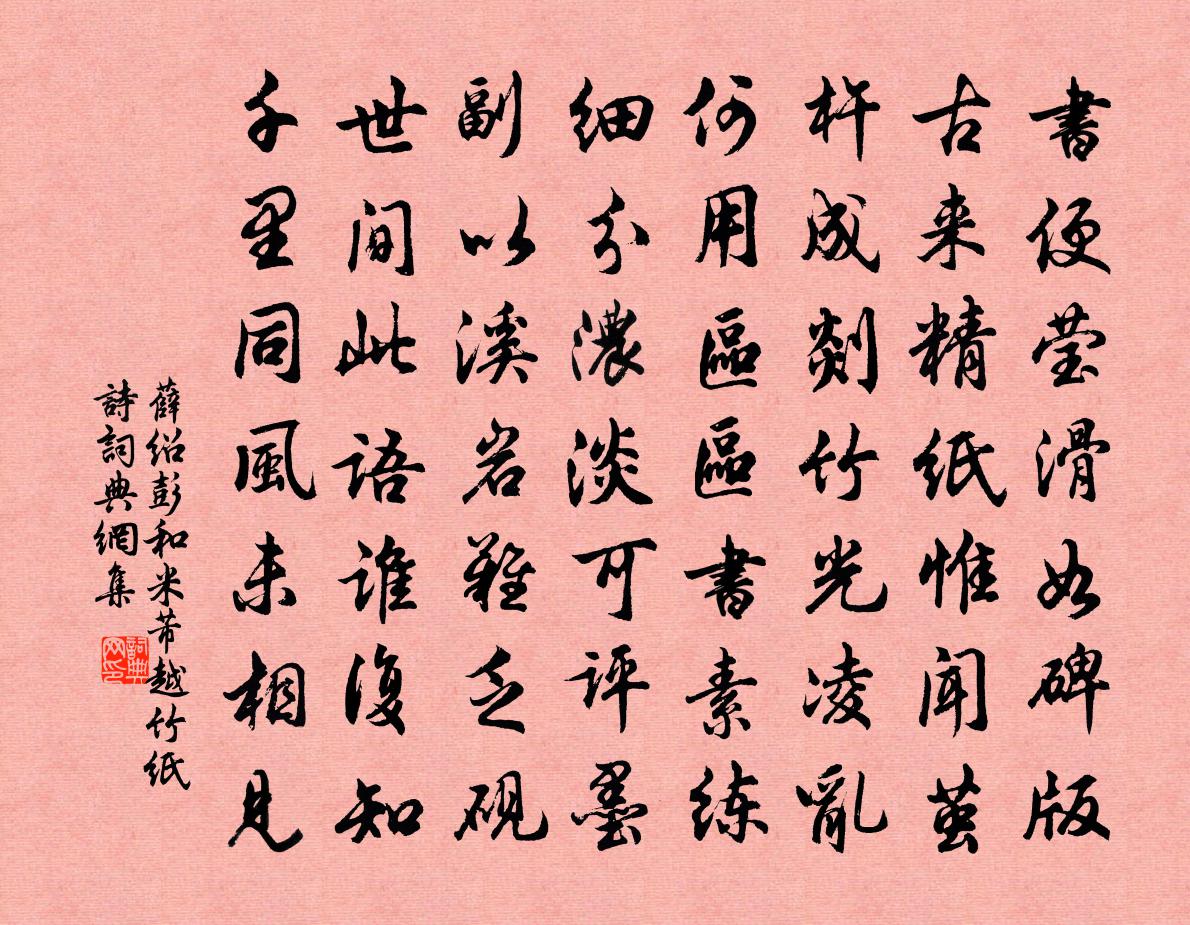 書便莹滑如碑版
古来精紙惟闻茧
杵成剡竹光凌亂
何用區區書素练
细分濃淡可评墨
副以溪岩難乏砚
世间此语谁復知
千里同風未相見
薛绍彭和米芾越竹紙
詩詞典網集
詞典网印